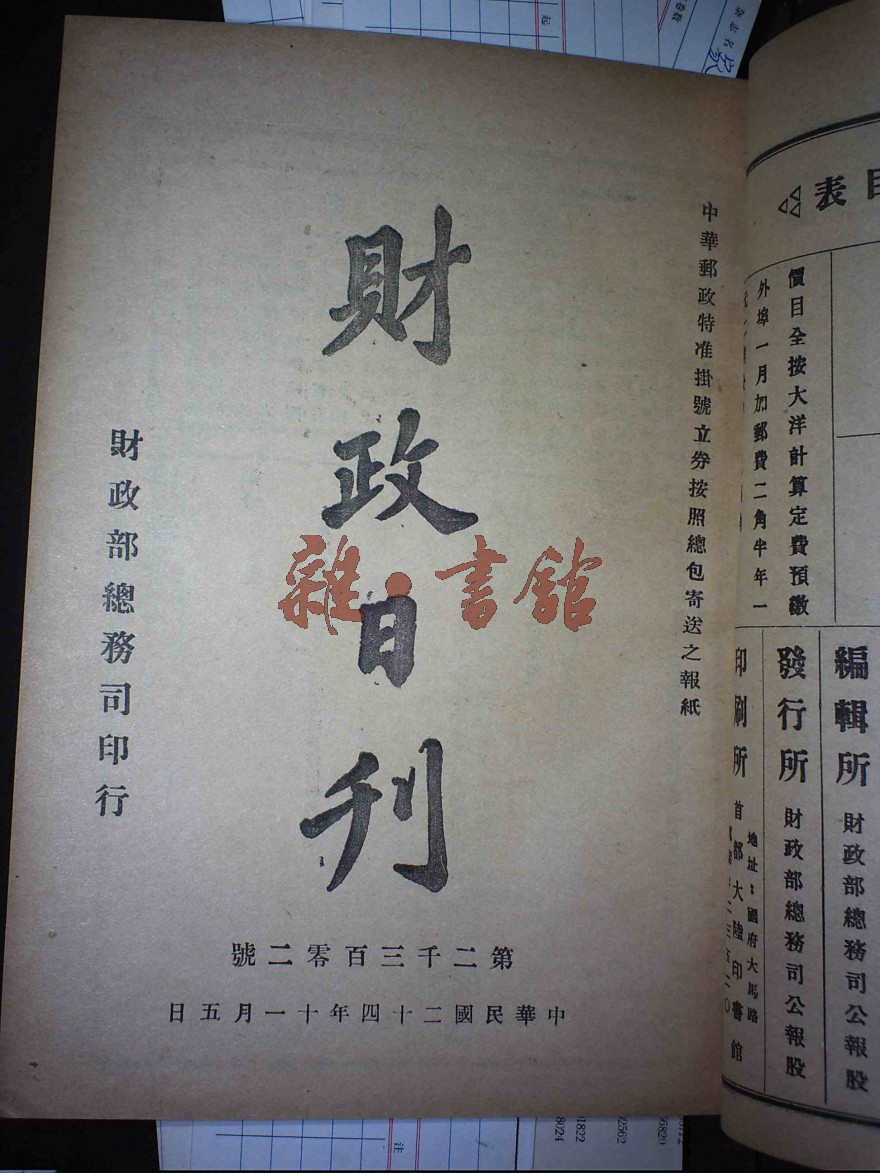 中華郵政特准掛號立券按照總包寄送之報紙
財政日刊
財政部總務司印行
第二千三百零二號
中華民國二十四年十一月五日
雜·書館
目表
價目全按大洋計算定費預繳
外埠一月加郵費二角半年一
編輯所 財政部總務司公報股
發行所 財政部總務司公報股
印刷所 首都大陸印書館
地址：國府大馬路